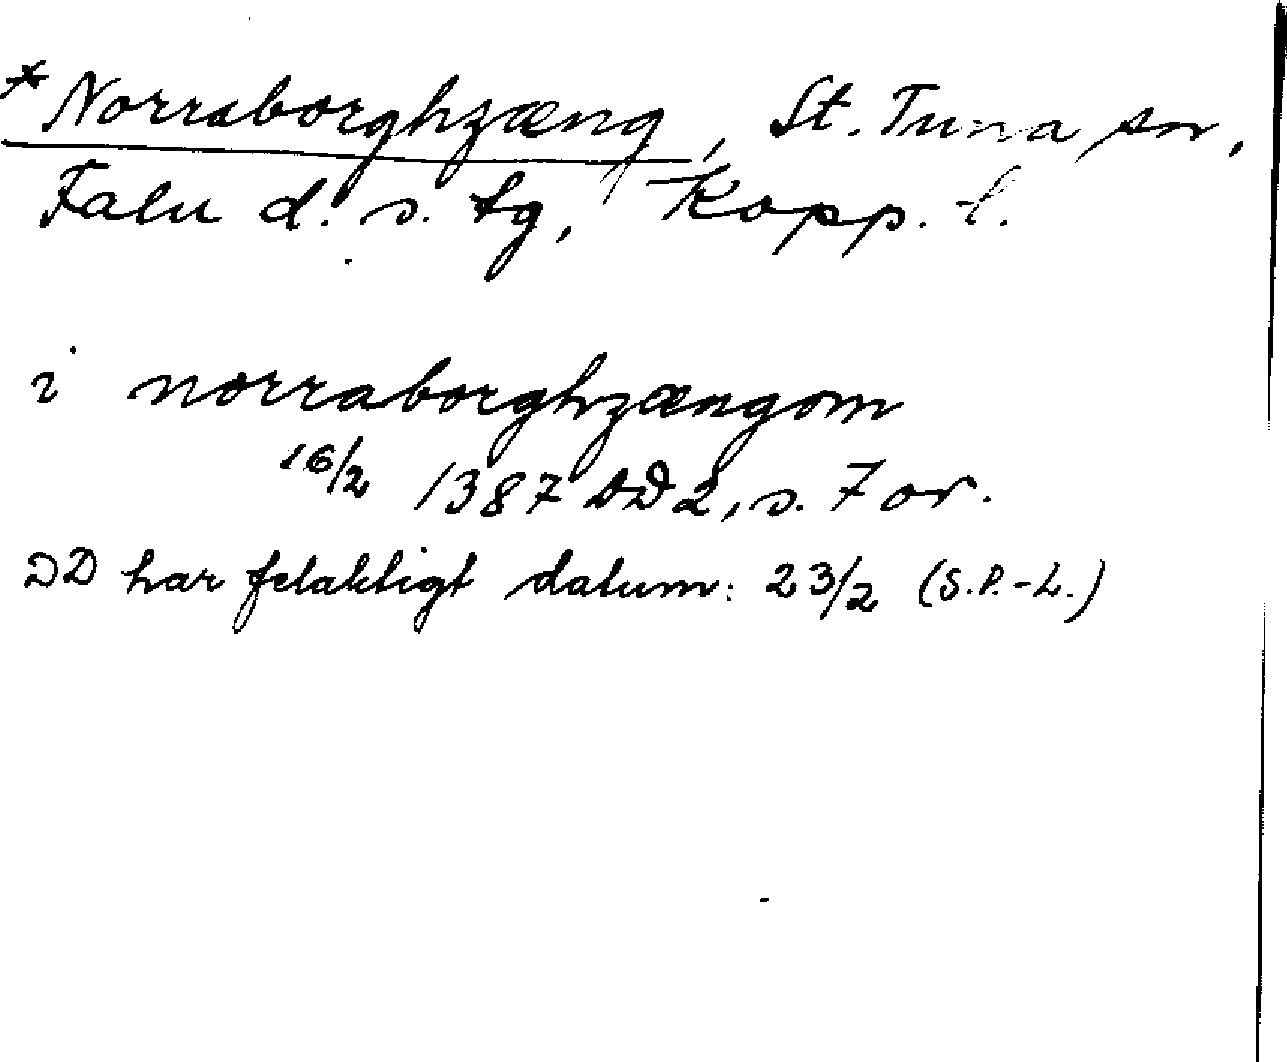 *Norraborghzæng, St. Tuna sn,
Falu d. s. tg, Kopp. l.
i norraborghzængom
16/2 1387 DD 2, s. 7 or.
DD har felaktigt datum: 23/2 (S.P.-L.)